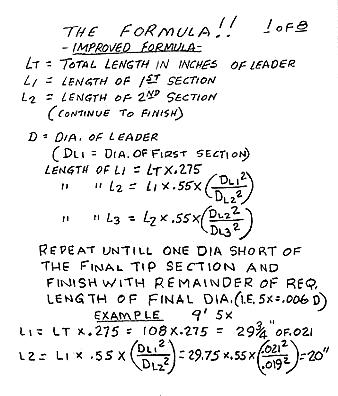 THE FORMULA!! 1 OF 8
- IMPROVED FORMULA -
LT = TOTAL LENGTH IN INCHES OF LEADER
L1 = LENGTH OF 1ST SECTION
L2 = LENGTH OF 2ND SECTION
(CONTINUE TO FINISH)
D = DIA. OF LEADER
(DL1 = DIA. OF FIRST SECTION)
LENGTH OF L1 = LT X .275
" " L2 = L1 X .55 X (DL1²/DL2²)
" " L3 = L2 X .55 X (DL2²/DL3²)
REPEAT UNTILL ONE DIA SHORT OF
THE FINAL TIP SECTION AND
FINISH WITH REMAINDER OF REQ.
LENGTH OF FINAL DIA. (I.E. 5X = .006 D)
EXAMPLE 9' 5X
L1 = LT X .275 = 108 X .275 = 29 3/4" OF .021
L2 = L1 X .55 X (DL1²/DL2²) = 29.75 X .55 X (.021²/.019²) = 20"